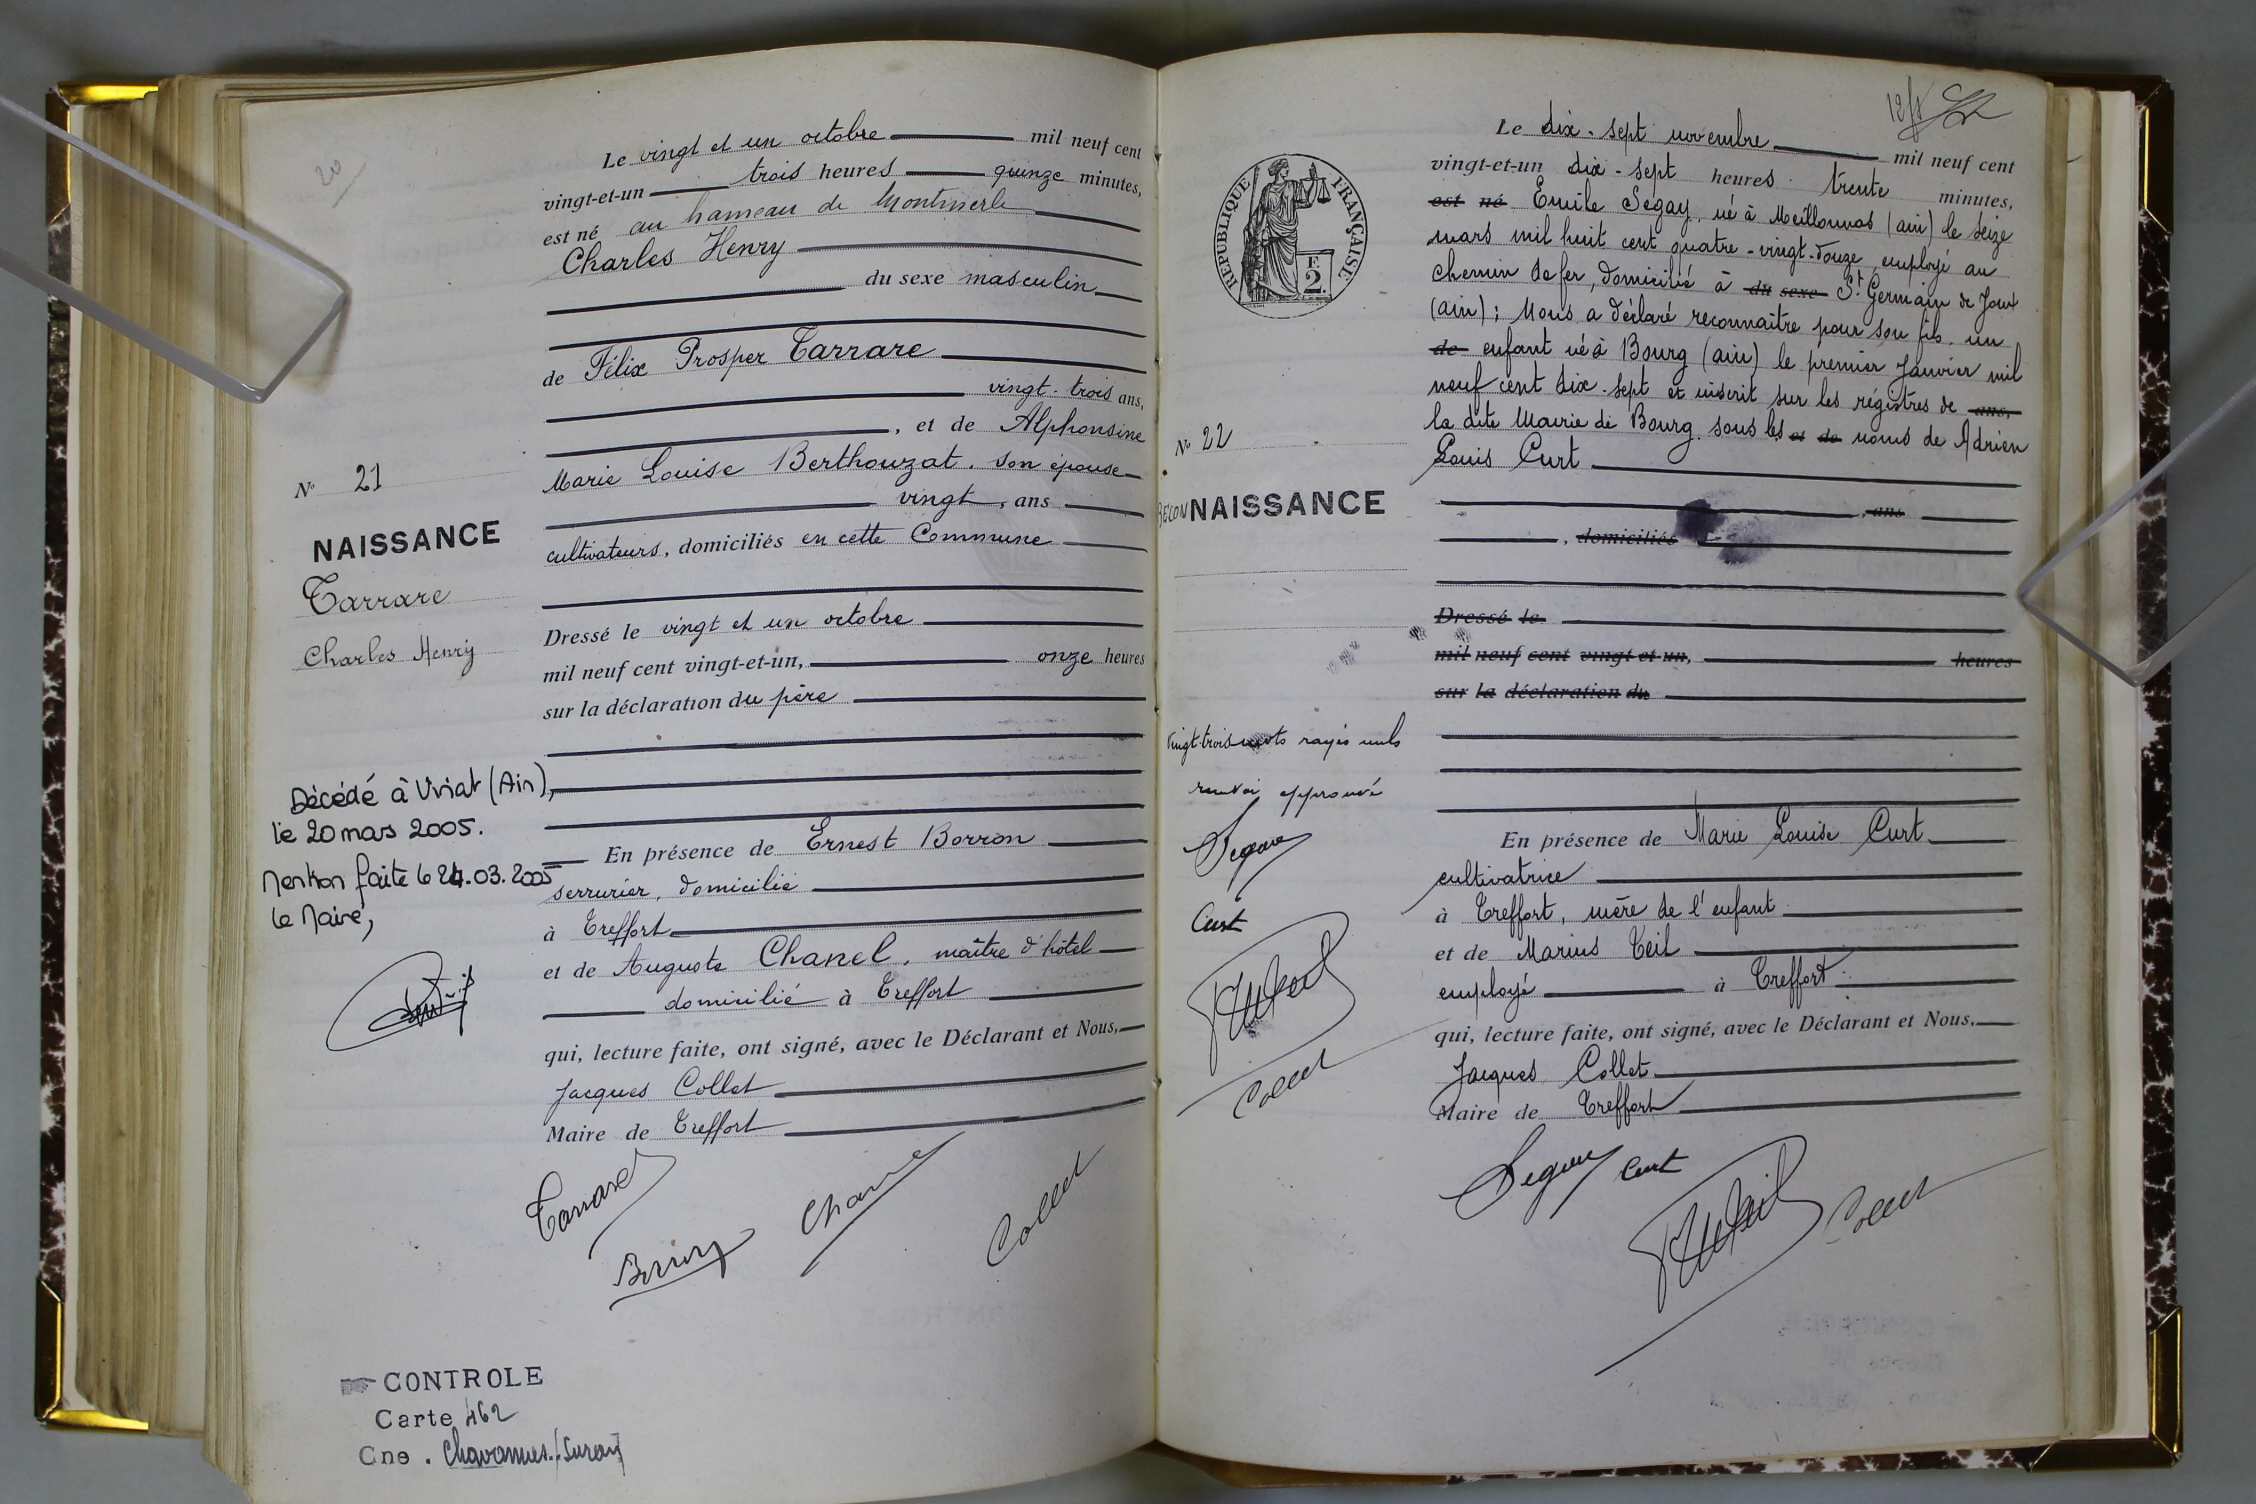 20
Le vingt et un octobre mil neuf cent
vingt-et-un trois heures quinze minutes,
est né au hameau de Montmerle
Charles Henry
du sexe masculin
de Félix Prosper Tarrare
vingt-trois ans,
, et de Alphonsine
Marie Louise Berthouzat, son épouse
vingt, ans
cultivateurs, domiciliés en cette Commune
Dressé le vingt et un octobre
mil neuf cent vingt-et-un, onze heures
sur la déclaration du père
En présence de Ernest Borron
serrurier, domicilié
à Treffort
et de Auguste Chanel, maître d'hôtel
domicilié à Treffort
qui, lecture faite, ont signé, avec le Déclarant et Nous,
Jacques Collet
Maire de Treffort
Tarrare
Borron
Chanel
Collet
N° 21
NAISSANCE
Tarrare
Charles Henry
Décédé à Viriat (Ain),
le 20 mars 2005.
Mention faite le 24.03.2005
Le Maire,
CONTROLE
Carte 462
Cne. Chavannes./Suran
Le dix-sept novembre mil neuf cent
vingt-et-un dix-sept heures trente minutes,
est né Emile Segay, né à Meillonnas (ain) le seize
mars mil huit cent quatre-vingt-douze, employé au
chemin de fer, domicilié à du sexe St Germain de Joux
(ain); Nous a déclaré reconnaître pour son fils, un
de enfant né à Bourg (ain) le premier Janvier mil
neuf cent dix-sept et inscrit sur les régistres de ans,
la dite Mairie de Bourg sous les et de noms de Adrien
Louis Curt
, ans
, domiciliés
Dressé le
mil neuf cent vingt et un, heures
sur la déclaration du
En présence de Marie Louise Curt
cultivatrice
à Treffort, mère de l'enfant
et de Marius Teil
employé à Treffort
qui, lecture faite, ont signé, avec le Déclarant et Nous,
Jacques Collet
Maire de Treffort
Segay
Curt
Collet
RÉPUBLIQUE FRANÇAISE
F.
2.
N° 22
RECONNAISSANCE
Vingt-trois mots rayés nuls
renvoi approuvé
Segay
Curt
Collet